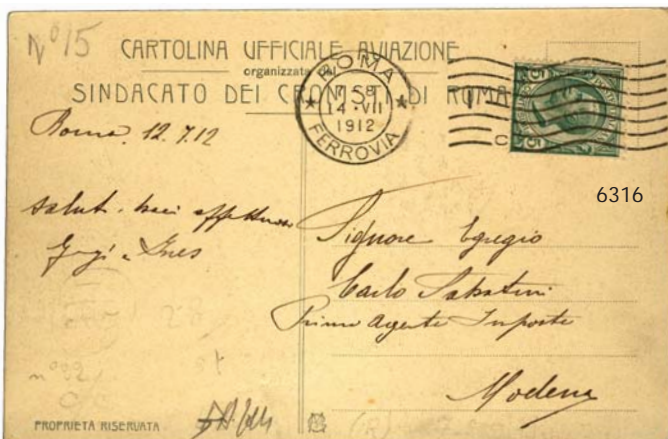 Nº 15
CARTOLINA UFFICIALE AVIAZIONE
organizzata dal
SINDACATO DEI CRONISTI DI ROMA
ROMA
14·VII
1912
FERROVIA
6316
Roma, 12.7.12
Saluti. baci affettuosi
Gigi e Ines
Signore Egregio
Carlo Sabatini
Primo Agente Imposte
Modena
PROPRIETÀ RISERVATA